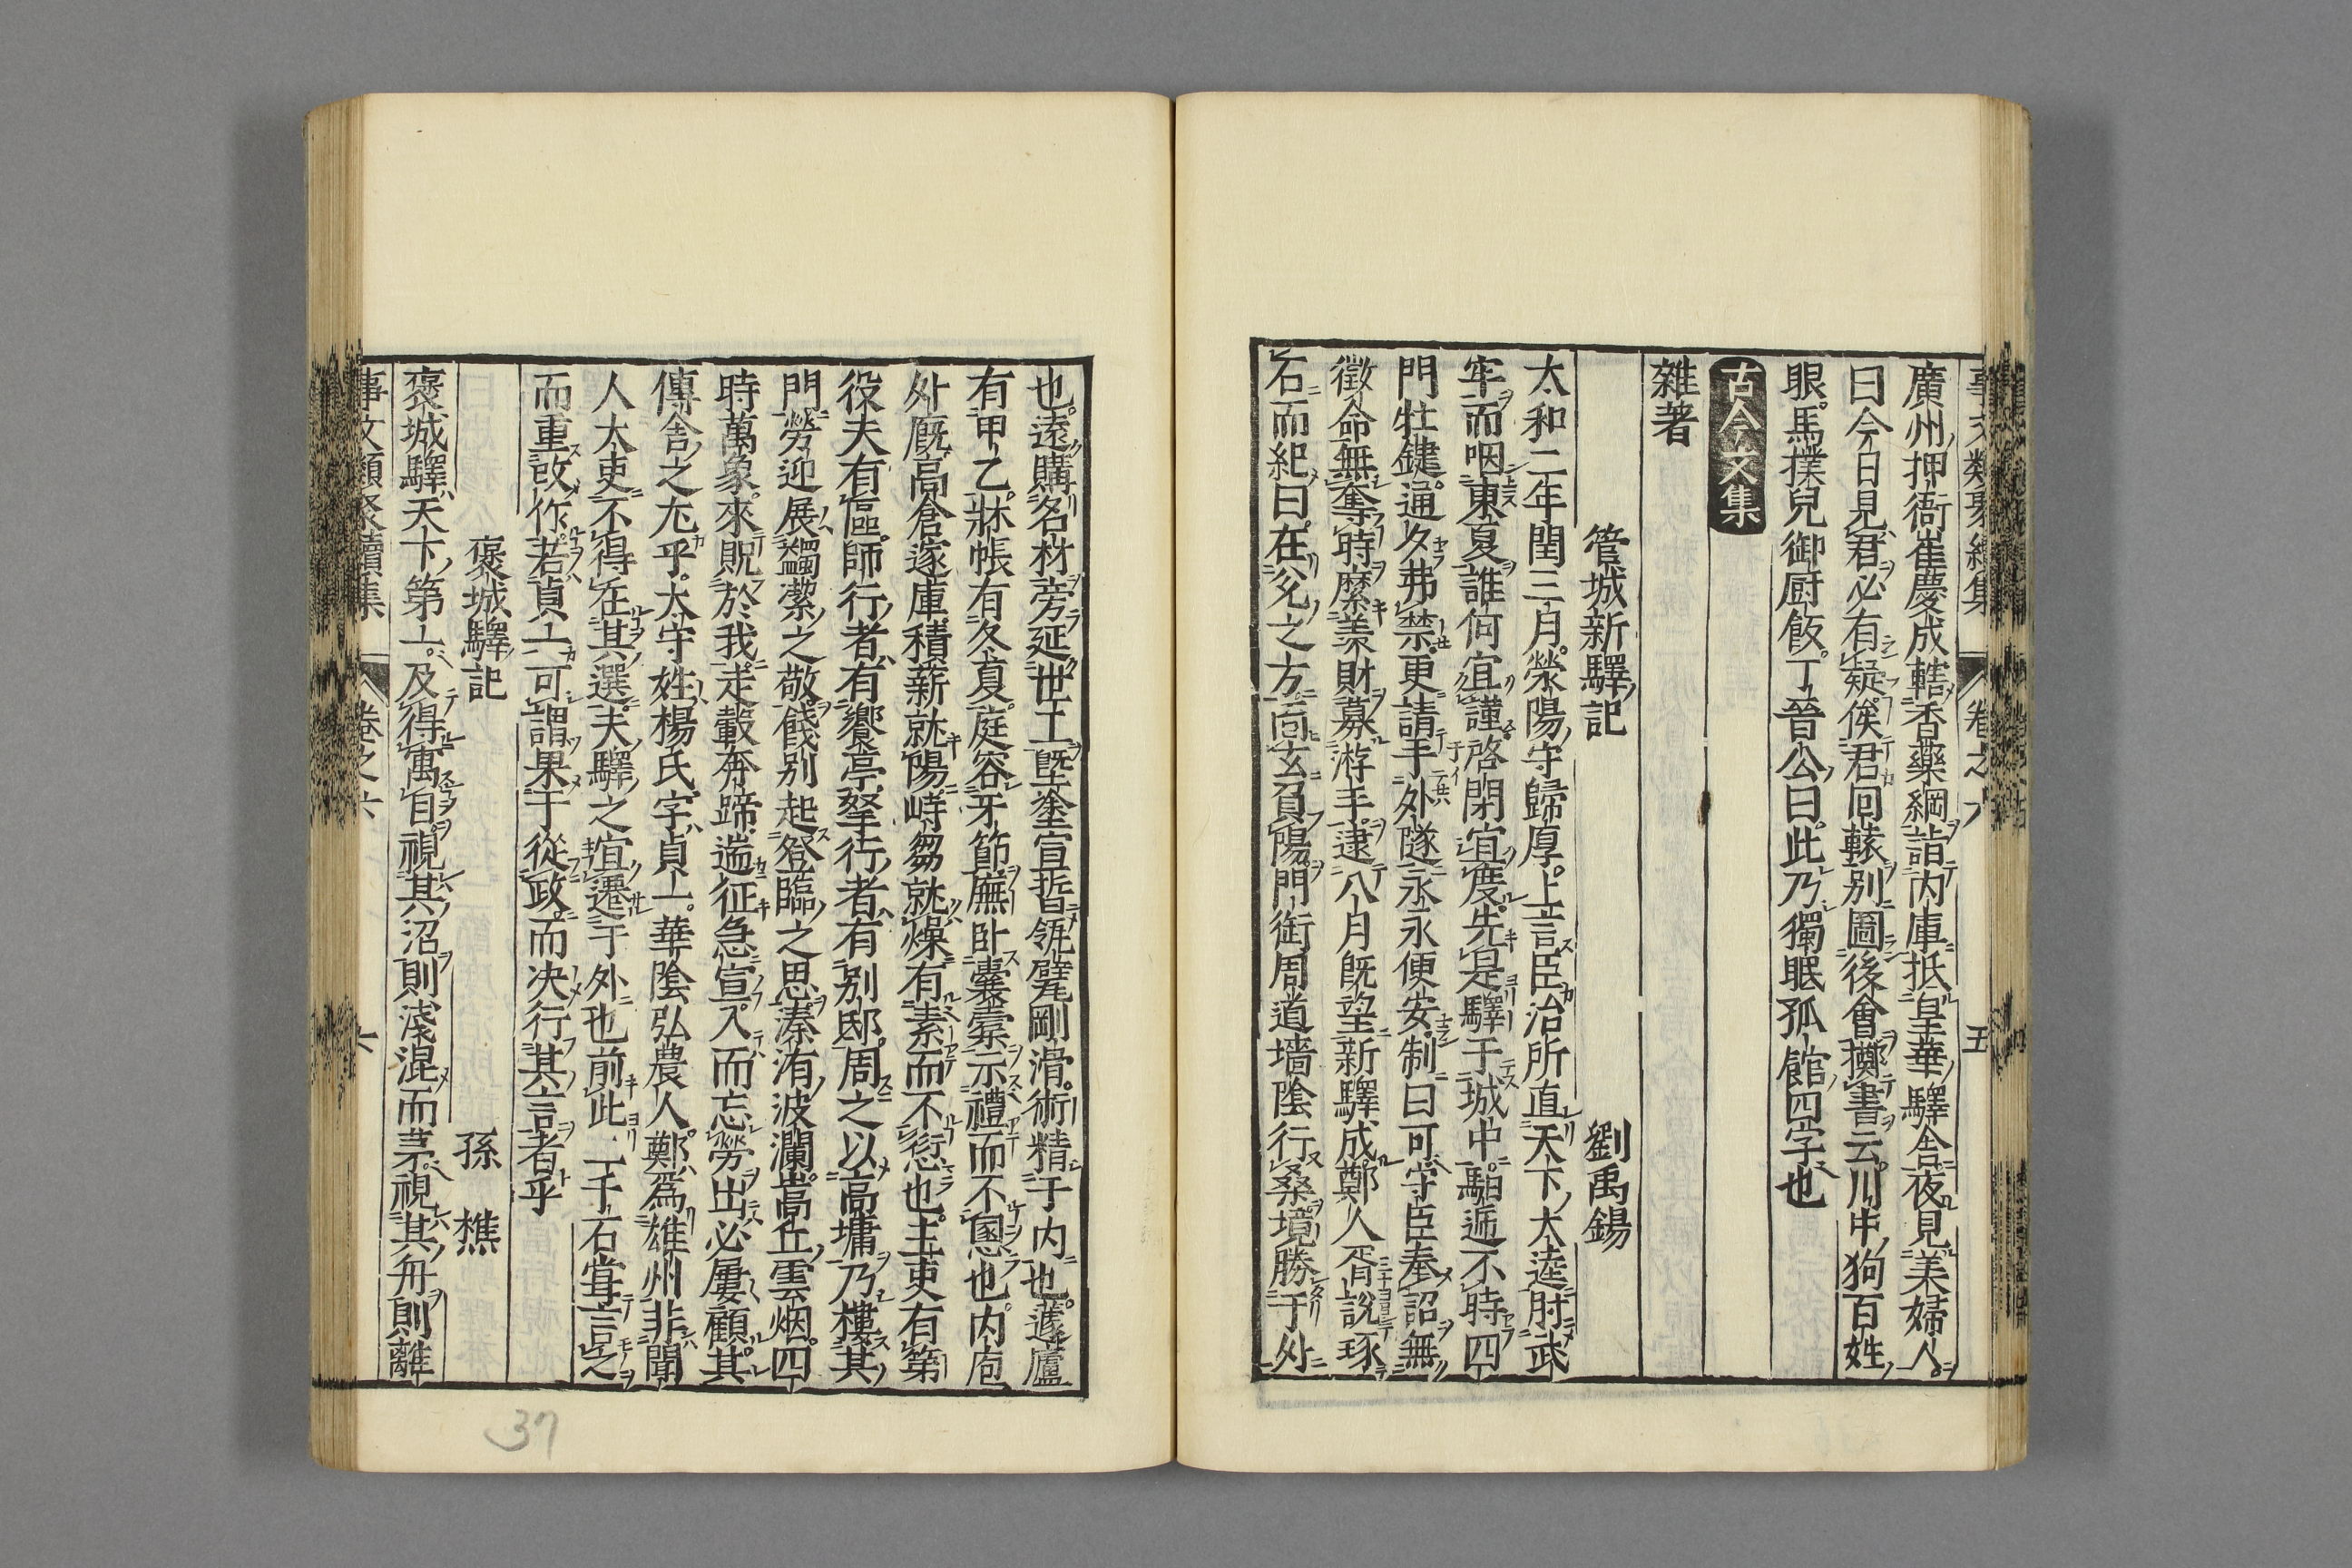 事文類聚續集 卷之六 五
廣州押衙崔慶成轄香藥綱詣内庫抵皇華驛舎夜見美婦人
曰今日見君必有疑俟君囘轅别圖後會擲書云川中狗百姓
眼馬撲兒御厨飯丁晉公曰此乃獨眠孤館四字也
古今文集
雜著
管城新驛記 劉禹錫
太和二年閏三月滎陽守歸厚上言臣治所直天下大逵肘武
牢而咽東夏誰何宜謹啓閉宜度先是驛于城中馹遞不時四
門牡鍵通夕弗禁更請手外隧永永便安制曰可守臣奉詔無
徵命無奪時縻羨財募游手逮八月既望新驛成鄭人胥說琢
石而紀曰在兊之方面玄負陽門衛周道墻陰行桑境勝于外
也遠購名材旁延世工曁塗宣晢瓴甓剛滑術精于内也蘧廬
有甲乙牀帳有冬夏庭容牙節廡卧囊橐示禮而不慁也内庖
外廐高倉邃庫積薪就陽峙芻就燥有素而不愆也主吏有第
役夫有區師行者有饗亭孥行者有别邸周之以高墉乃樓其
門勞迎展蠲潔之敬餞别起登臨之思溱洧波瀾嵩丘雲烟四
時萬象來貺於我走轂奔蹄遄征急宣入而忘勞出必屢顧其
傳舎之尤乎太守姓楊氏字貞一華陰弘農人鄭爲雄州非聞
人大吏不得在其選夫驛之宜遷于外也前此二千石嘗言之
而重改作若貞一可謂果于從政而决行其言者乎
褒城驛記 孫樵
褒城驛天下第一及得寓目視其沼則淺混而茅視其舟則離
事文類聚續集 卷之六 六
37